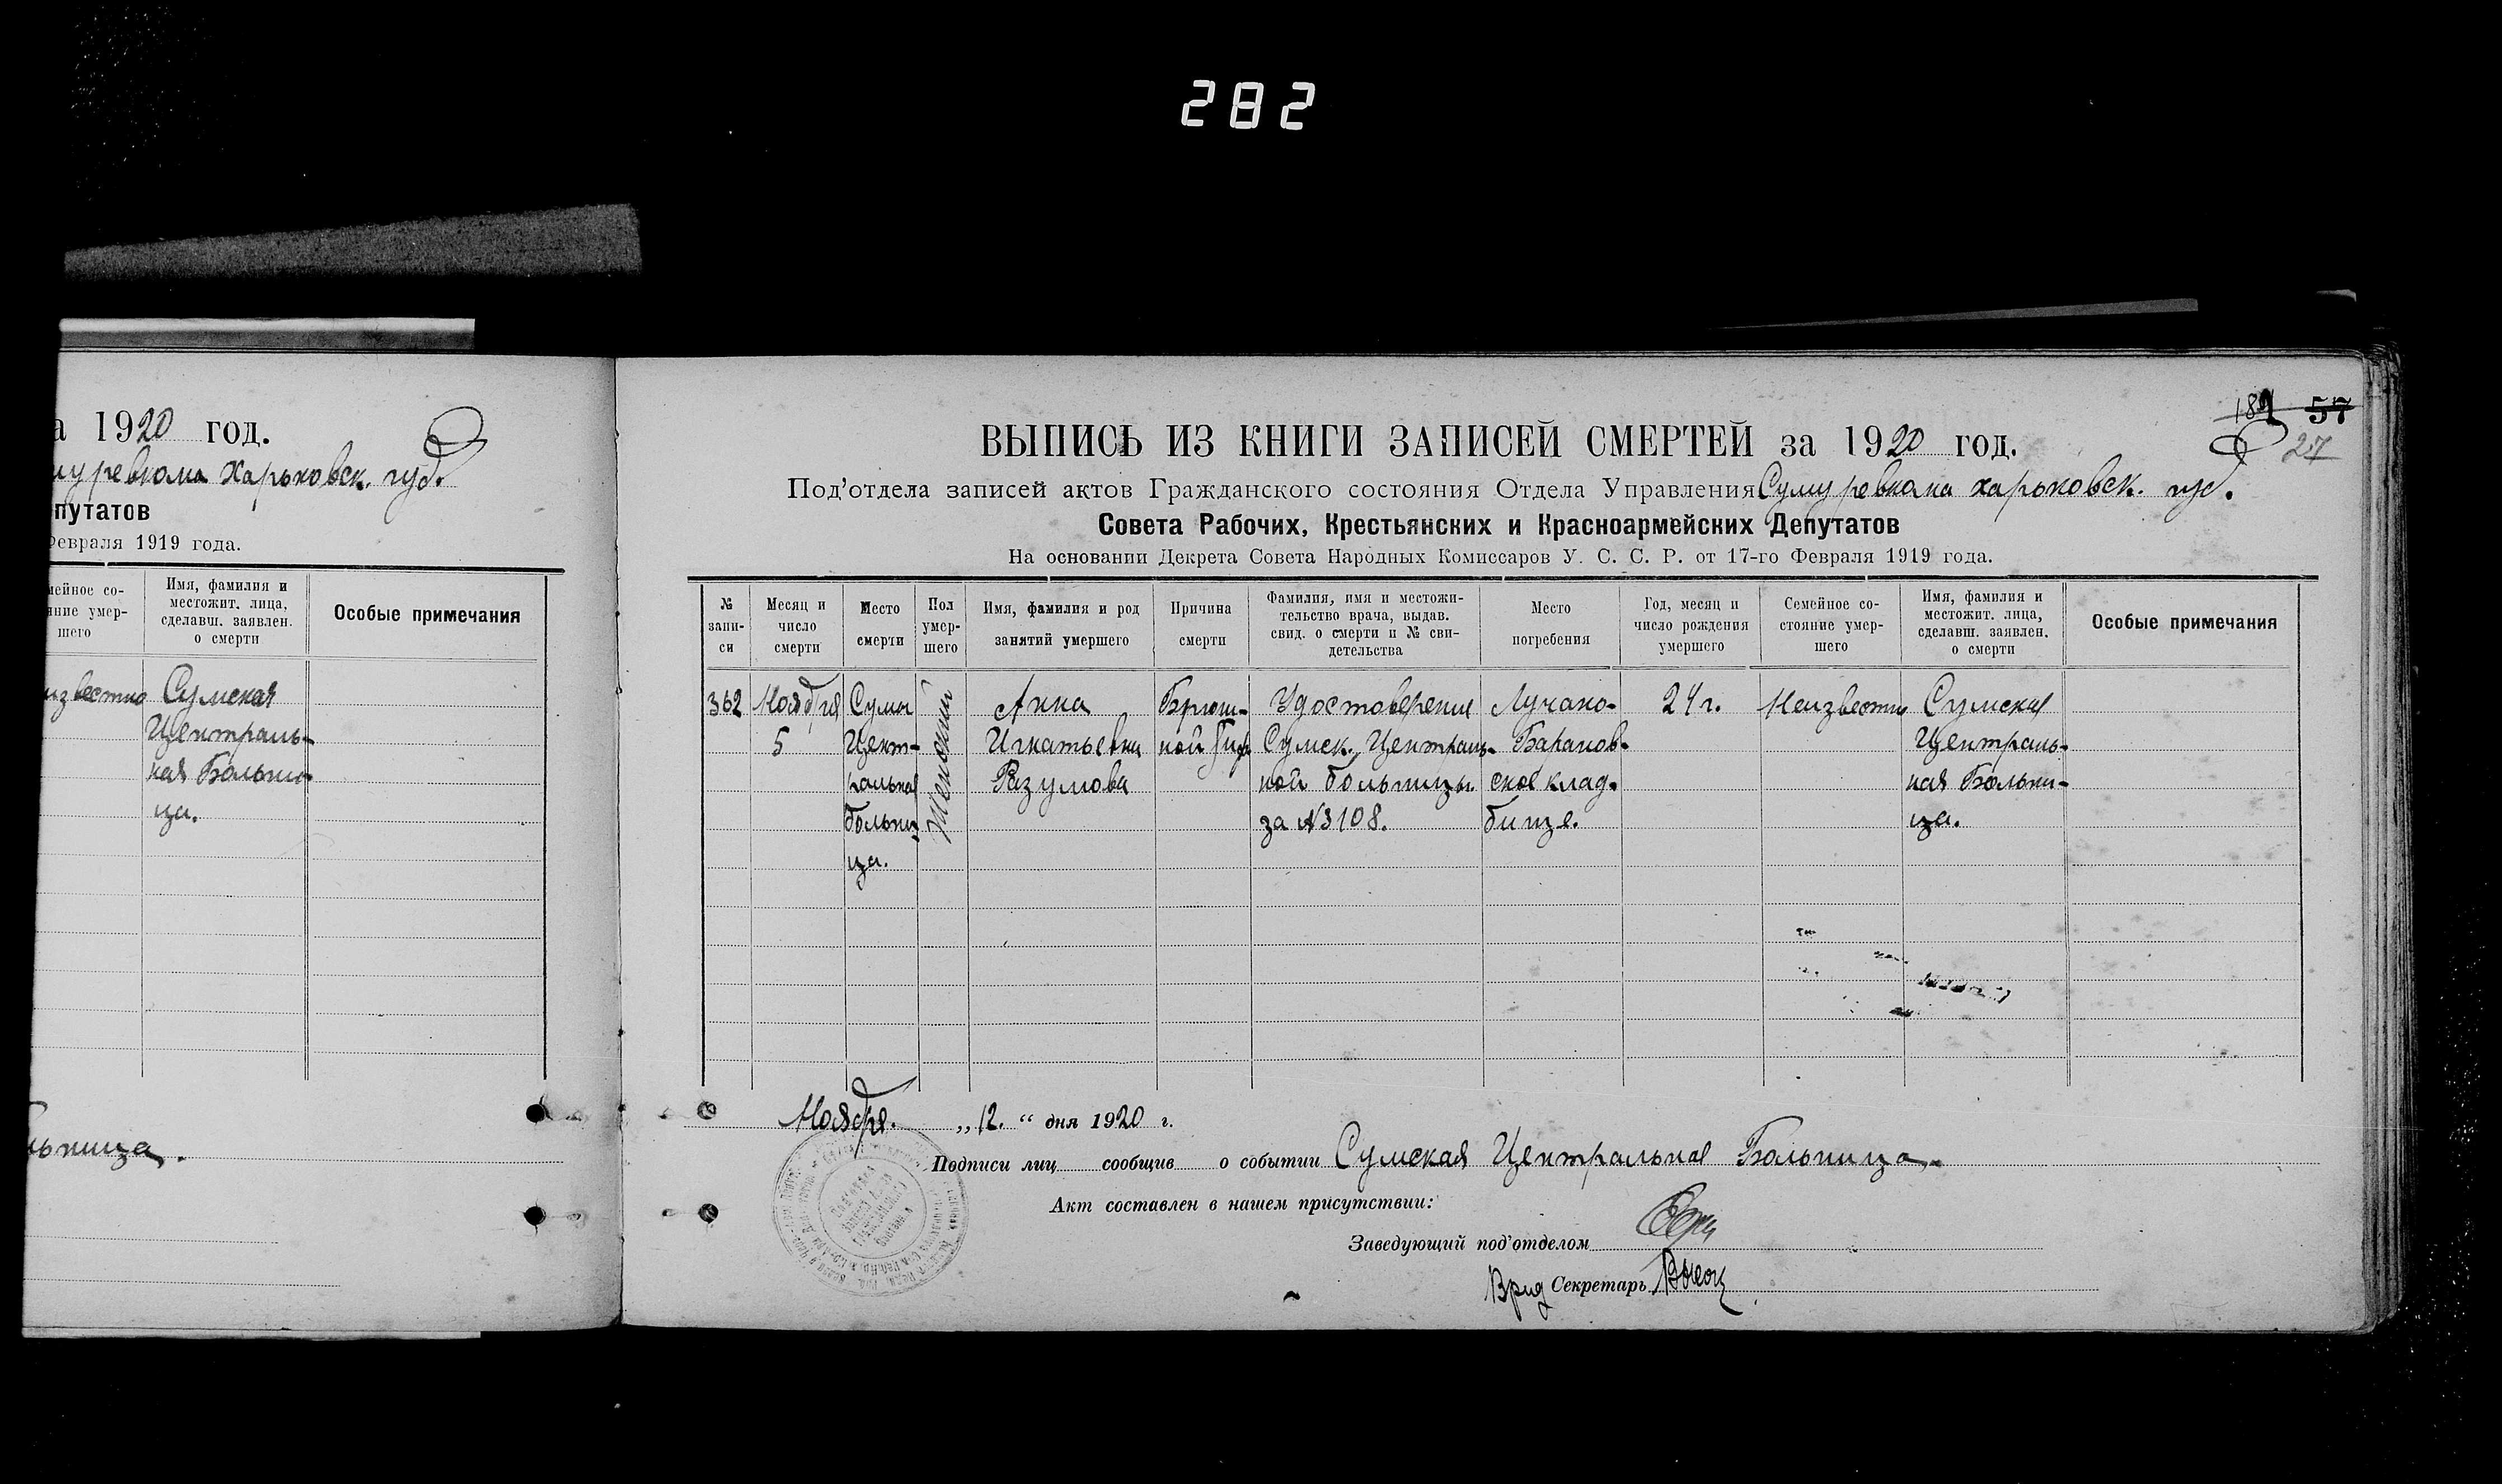 282
а 1920 год.
муревкома Харьковск. губ.
путатов
Февраля 1919 года.
мейное со-
яние умер-
шего
Имя, фамилия и
местожит. лица,
сделавш. заявлен.
о смерти
Особые примечания
известно
Сумская
Централь-
ная Больни-
ца.
льница.
57
27
ВЫПИСЬ ИЗ КНИГИ ЗАПИСЕЙ СМЕРТЕЙ за 1920 год.
Под'отдела записей актов Гражданского состояния Отдела Управления Сумуревкома харьковск. губ.
Совета Рабочих, Крестьянских и Красноармейских Депутатов
На основании Декрета Совета Народных Комиссаров У. С. С. Р. от 17-го Февраля 1919 года.
№
запи-
си
Месяц и
число
смерти
Место
смерти
Пол
умер-
шего
Имя, фамилия и род
занятий умершего
Причина
смерти
Фамилия, имя и местожи-
тельство врача, выдав.
свид. о смерти и № сви-
детельства
Место
погребения
Год, месяц и
число рождения
умершего
Семейное со-
стояние умер-
шего
Имя, фамилия и
местожит. лица,
сделавш. заявлен.
о смерти
Особые примечания
362
Ноября
5
Сумы
Цент-
ральная
больни-
ца.
Женский
Анна
Игнатьевна
Разумова
Брюш-
ной тиф
Удостоверение
Сумск. Централь-
ной больницы
за №3108.
Лучано-
Баранов-
ское клад-
бище.
24 г.
Неизвестно
Сумская
Централь-
ная Больни-
ца.
Ноября. „12.“ дня 1920 г.
Подписи лиц сообщив о событии Сумская Центральная Больница.
Акт составлен в нашем присутствии:
Заведующий под'отделом
Врид Секретарь